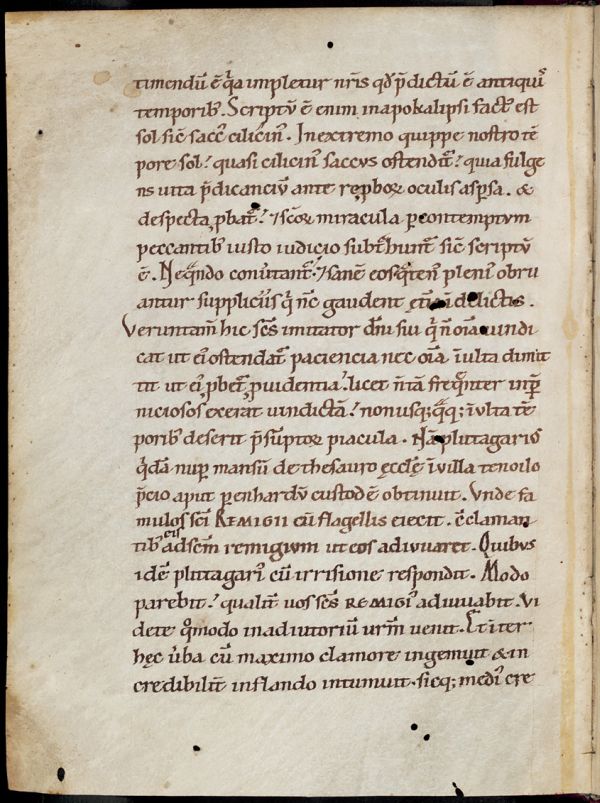 timendū ē q̄a impletur nr̄is qđ p̄dictū ē antiquis
temporib; Scriptū ē enim in apokalipsi factꝰ est
sol sic̄ saccꝰ cilicinꝰ. In extremo quippe nostro tē
pore sol quasi cilicinꝰ saccus ostenditᷣ quia fulge
ns uita p̄dicanciū ante reꝓboꝝ oculis asp̄sa. &
despecta ꝓbatᷣ. & sc̄oꝝ miracula ꝑ contemptum
peccantib; iusto iudicio subtᷣhuntᷣ sic̄ scriptū
ē. Ne q̄ndo conuᷣtantᷣ & sanē eos
antur suppliciis qⁱ nc̄ gaudent delictis.
Veruntam̄ hic sc̄s imitator dn̄i sui qⁱ n̄ oīa uindi
cat ut eiꝰ ostendatᷣ paciencia nec oīa īulta dimit
tit ut eiꝰ ꝓbetᷣ ꝓuidentia. licet n̄ tā freq̄nter in ꝑ
niciosos exerat uindictā. non usq; q̄q; īulta tē
porib; deserit p̄sūptoꝝ piacula. Nā plittagariꝰ
q̄dā nuꝑ mansū de thesauro ęccłę ī uilla tenoilo
p̄cio aput perenhardū custodē obtinuit. Vnde fa
mulos sc̄i REMIGII cū flagellis eiecit. c̄claman
tib; eis ad sc̄m remigium ut eos adiuuaret. Quibus
idē plittagariꝰ cū irrisione respondit. Modo
parebit qualitᷣ uos sc̄s REMIGIꝰ adiuuabit. Vi
dete q̊modo in adiutoriū ur̄m uenit. Et iter
hęc uᷣba cū maximo clamore ingemuit & in
credibilitᷣ inflando intumuit. sicq; mediꝰ cre